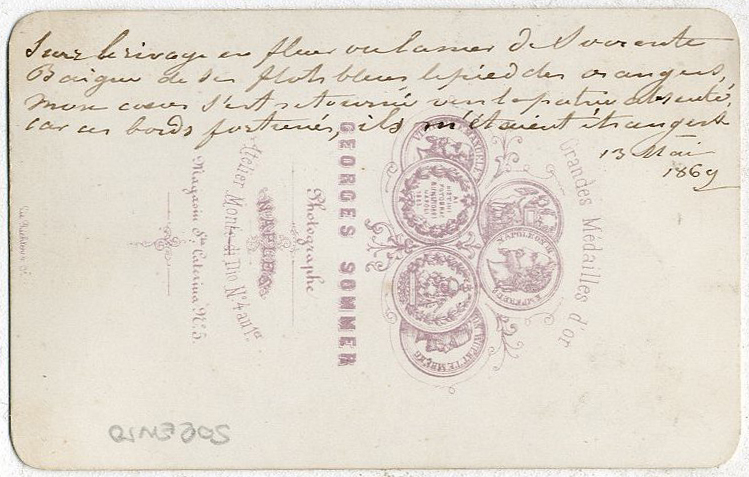 Sur le rivage en fleur où la mer de Sorrente
Baigne de ses flots bleus, le pied des orangers,
Mon cœur s'est retourné vers la patrie absente,
Car ces bords fortunés, ils m'étaient étrangers
13 Mai
1869
Grandes Médailles d'or
NAPOLEON III
EMPEREUR
GEORGES SOMMER
Photographe
NAPLES
Atelier Monte di Dio N.º 4 au 1.er
Magasin S.ta Caterina N.º 5
SORENTO